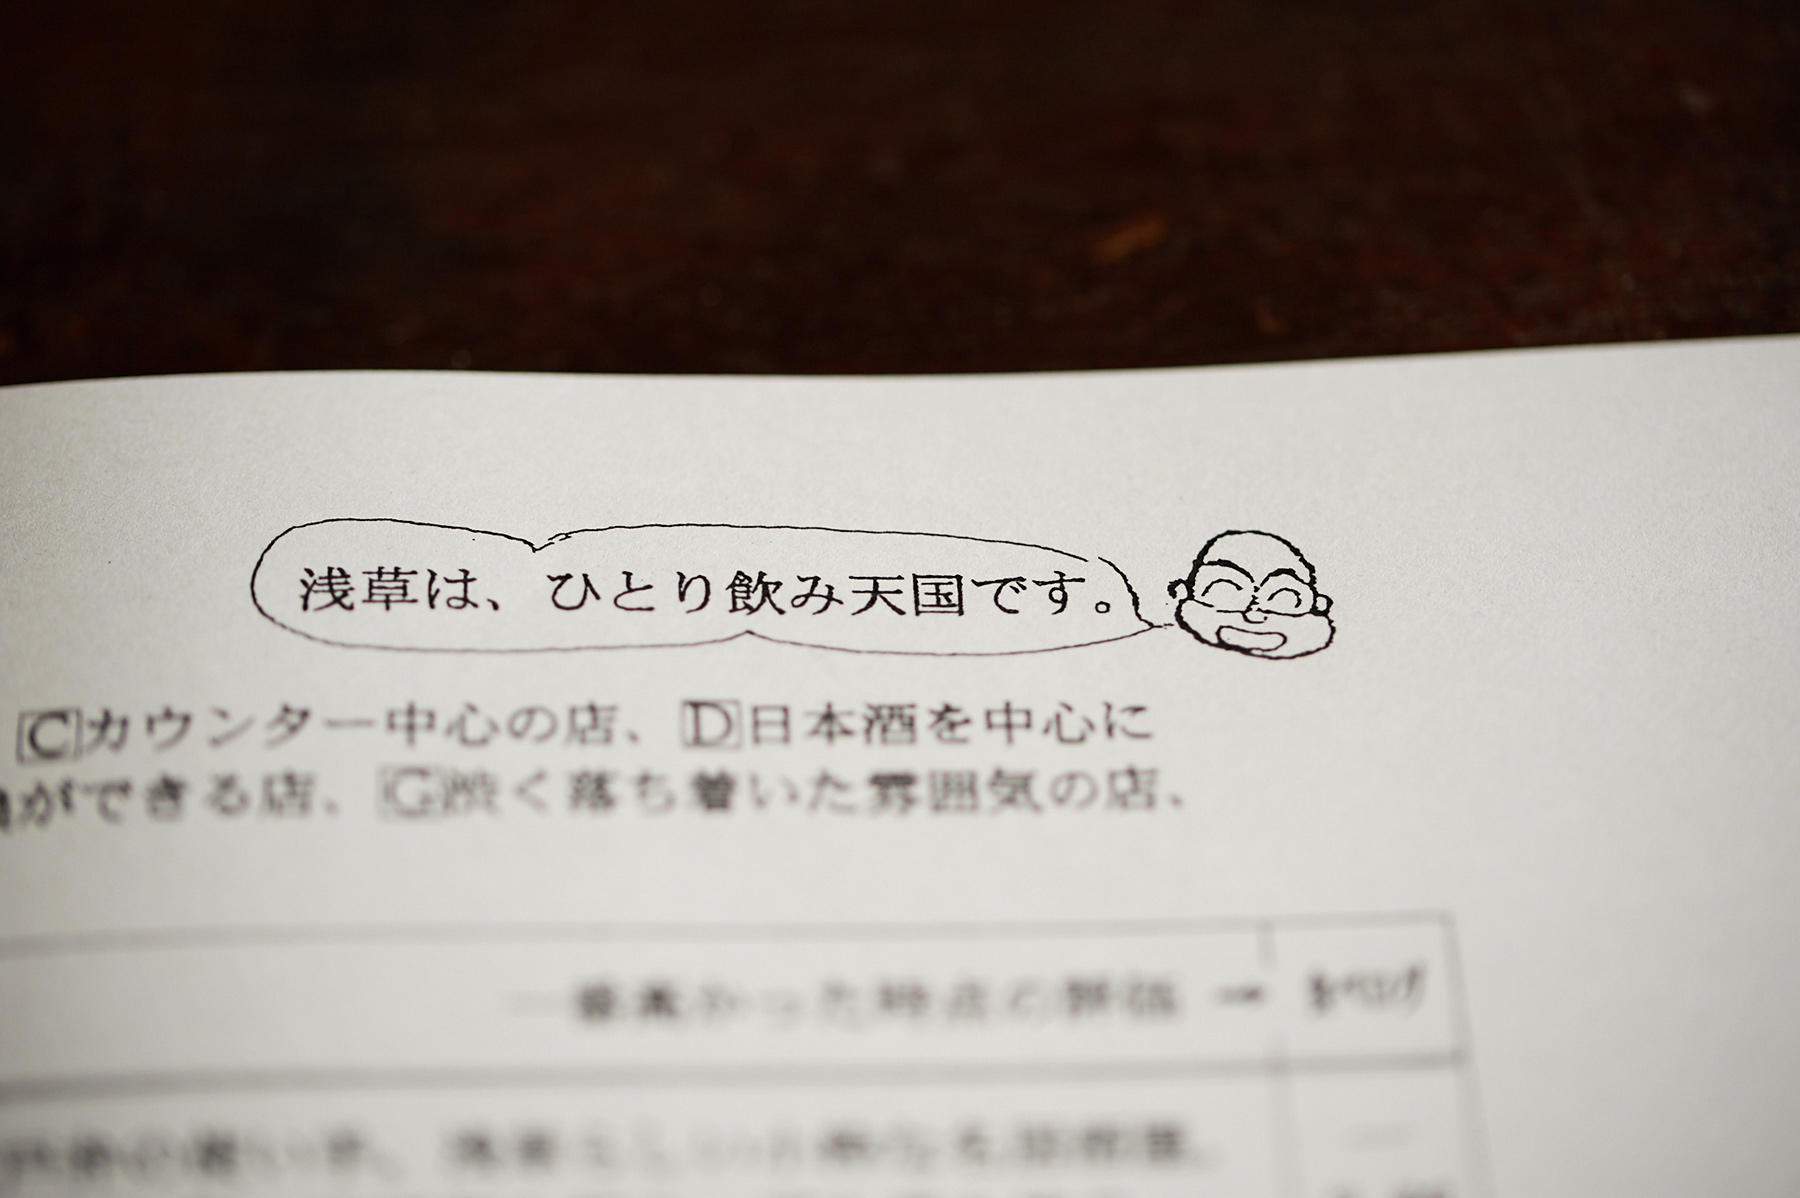 浅草は、ひとり飲み天国です。
Cカウンター中心の店、D日本酒を中心に
ができる店、G渋く落ち着いた雰囲気の店、
一番高かった時点の評価 → 食べログ